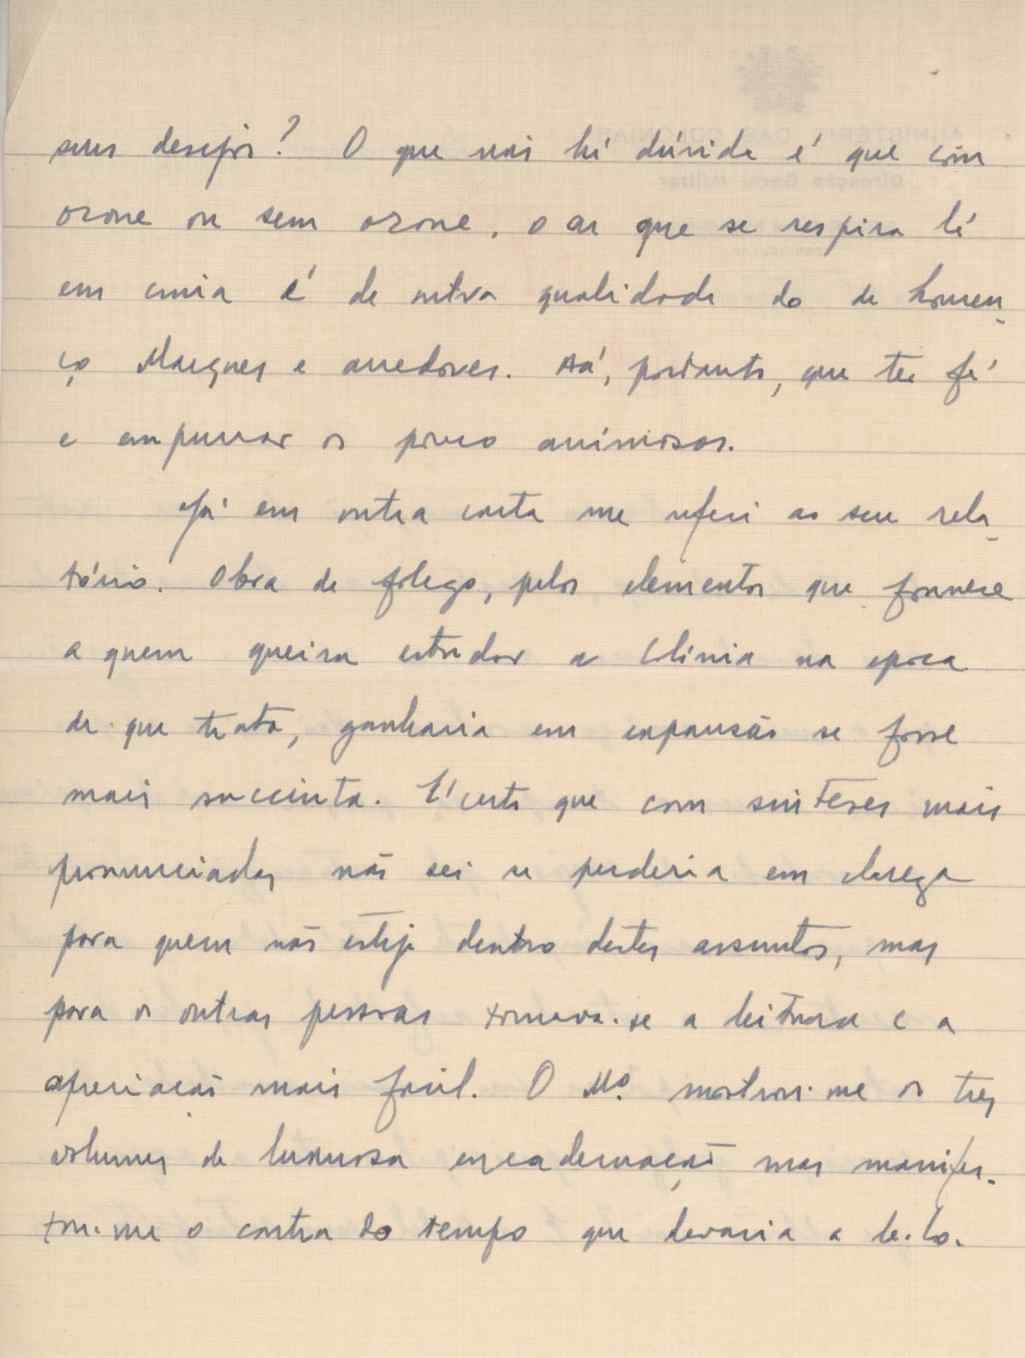 seus desejos? O que não há dúvida é que com
ozone ou sem ozone, o ar que se respira lá
em cima é de outra qualidade do de Louren-
ço Marques e arredores. Há, portanto, que ter fé
e empurrar os pouco animosos.
Já em outra carta me referi ao seu rela-
tório. Obra de folego, pelos elementos que fornece
a quem queira estudar a Colónia na epoca
de que trata, ganharia em expansão se fosse
mais succinta. É certo que com sinteses mais
pronunciadas não sei se perderia em clareza
para quem não esteja dentro destes assuntos, mas
para as outras pessoas tornava-se a leitura e a
apreciação mais facil. O Mo. mostrou-me os tres
volumes de luxuosa encadernação mas manifes-
tou-me o contra do tempo que levaria a le-lo.